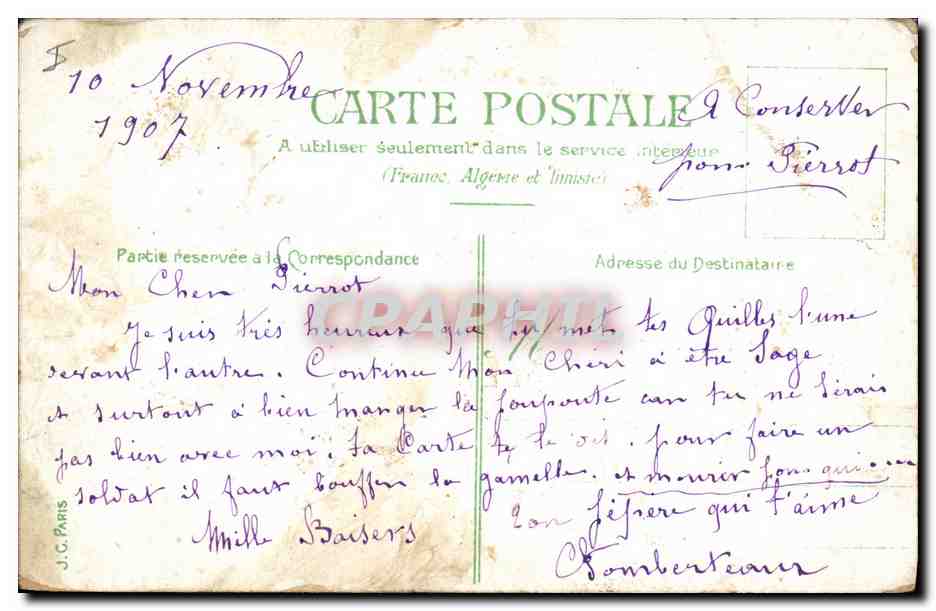 10 Novembre
1907
CARTE POSTALE
A Conserver
pour Pierrot
A utiliser seulement dans le service interieur
(France, Algerie et Tunisie)
Partie réservée à la Correspondance
Adresse du Destinataire
Mon Cher Pierrot
CPAPHIL
Je suis très heureux que tu met tes Quilles l'une
devant l'autre. Continue Mon Chéri à être Sage
et surtout à bien manger la soupoute car tu ne serais
pas bien avec moi. ta Carte te le dis. pour faire un
soldat il faut bouffer la gamelle. et mourir
Ton pépère qui t'aime
Mille Baisers
J.C. PARIS